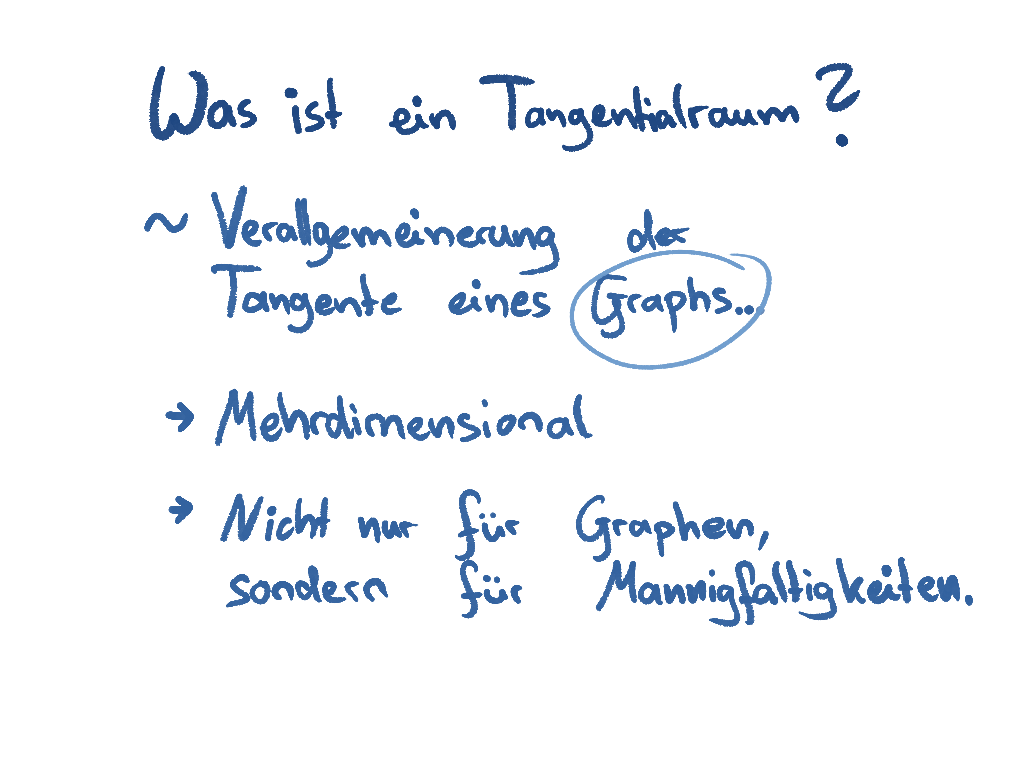 Was ist ein Tangentialraum?
~ Verallgemeinerung der
Tangente eines Graphs...
→ Mehrdimensional
→ Nicht nur für Graphen,
sondern für Mannigfaltigkeiten.